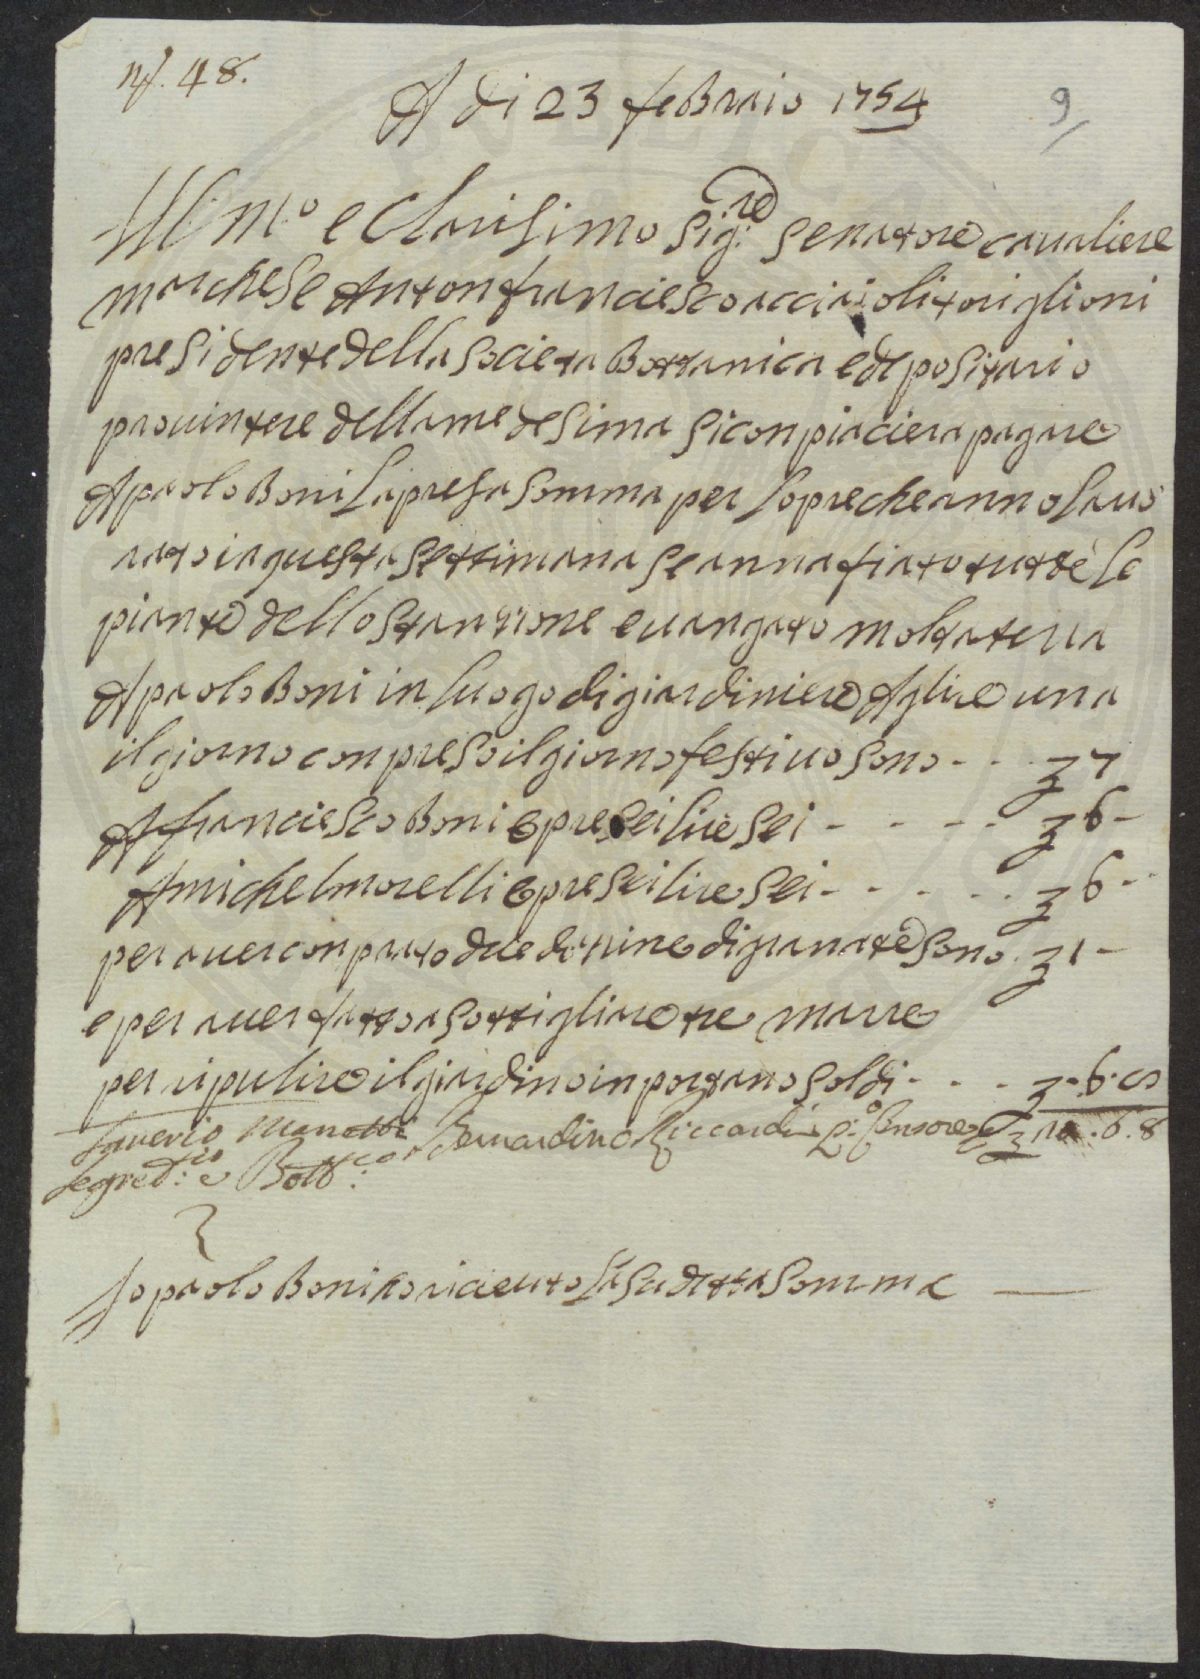 N. 48.
A di 23 febraio 1754
9
Ill mo e Clarisimo Sig:re Senatore cavaliere
marchese Antonfranciesco acciaioli toriglioni
presidente della Societa Bottanica e depositario
provintere della medesima Si conpiaciera pagare
A paolo Boni La presa Somma per L opre che anno Lavo
rato in questa Settimana Se annafiato tutte Le
piante dello Stanzione e vangato molta terra
A paolo Boni in Luogo di giardiniere A lire una
il giorno conpreso il giorno festivo sono - - - 7
A franciesco Boni opre sei lire sei - - - - - 6 -
A michel morelli opre sei lire sei - - - - - 6 - -
per aver conprato due dozine di granate sono 1 -
e per aver fatto a Sottigliare tre marre
per ripulire il giardino inportano Soldi - - - - 6. 8
Saverio Manetti Bernardino Riccardi P:o Censore .6.8
Segret:rio e Bott:co
Io paolo Boni o riceuto La Sudetta Somma